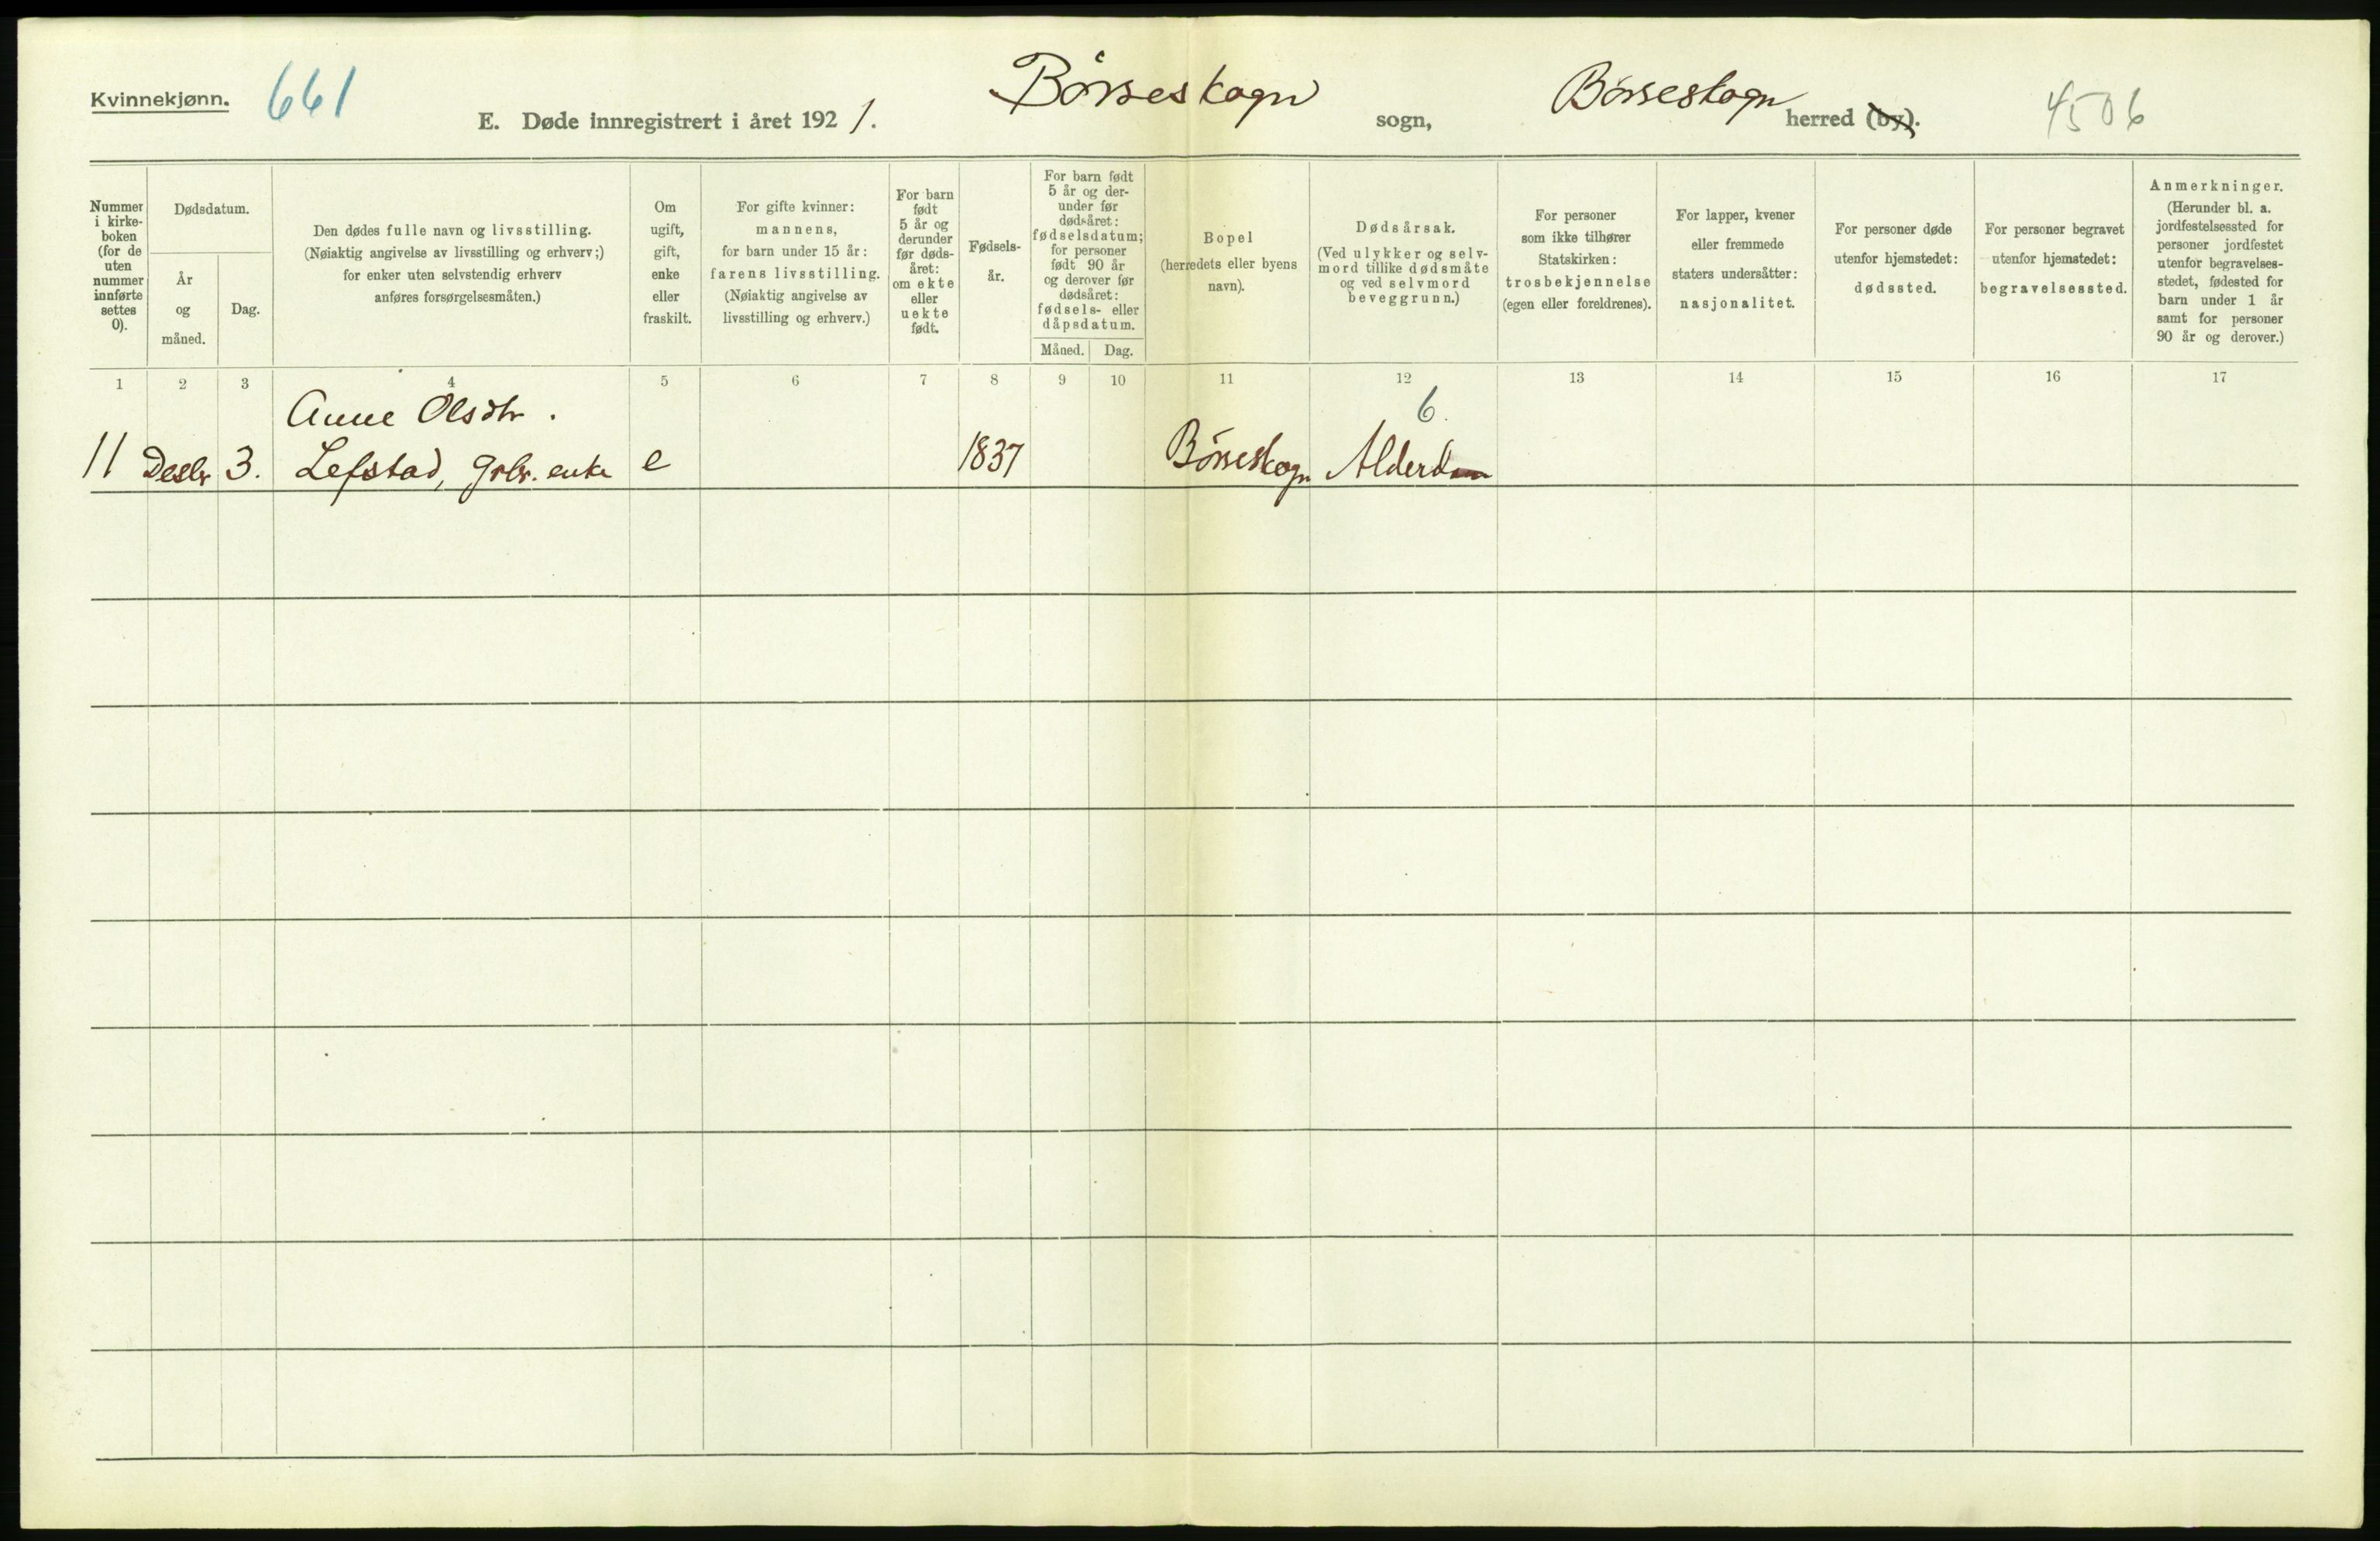 Kvinnekjønn.
661
E. Døde innregistrert i året 1921.
Børseskogn
sogn,
Børseskogn
herred (by).
4506
Nummer
i kirke-
boken
(for de
uten
nummer
innførte
settes
0).
Dødsdatum.
År
og
måned.
Dag.
Den dødes fulle navn og livsstilling.
(Nøiaktig angivelse av livsstilling og erhverv;)
for enker uten selvstendig erhverv
anføres forsørgelsesmåten.)
Om
ugift,
gift,
enke
eller
fraskilt.
For gifte kvinner:
mannens,
for barn under 15 år:
farens livsstilling.
(Nøiaktig angivelse av
livsstilling og erhverv.)
For barn
født
5 år og
derunder
før døds-
året:
om ekte
eller
uekte
født.
Fødsels-
år.
For barn født
5 år og der-
under før
dødsåret:
fødselsdatum;
for personer
født 90 år
og derover før
dødsåret:
fødsels- eller
dåpsdatum.
Måned.
Dag.
Bopel
(herredets eller byens
navn).
Dødsårsak.
(Ved ulykker og selv-
mord tillike dødsmåte
og ved selvmord
beveggrunn.)
For personer
som ikke tilhører
Statskirken:
trosbekjennelse
(egen eller foreldrenes).
For lapper, kvener
eller fremmede
staters undersåtter:
nasjonalitet.
For personer døde
utenfor hjemstedet:
dødssted.
For personer begravet
utenfor hjemstedet:
begravelsessted.
Anmerkninger.
(Herunder bl. a.
jordfestelsessted for
personer jordfestet
utenfor begravelses-
stedet, fødested for
barn under 1 år
samt for personer
90 år og derover.)
1 2 3 4 5 6 7 8 9 10 11 12 13 14 15 16 17
Anne Olsdtr.
6.
11 Desbr 3. Lefstad, grbr. enke e 1837 Børseskogn Alderdom